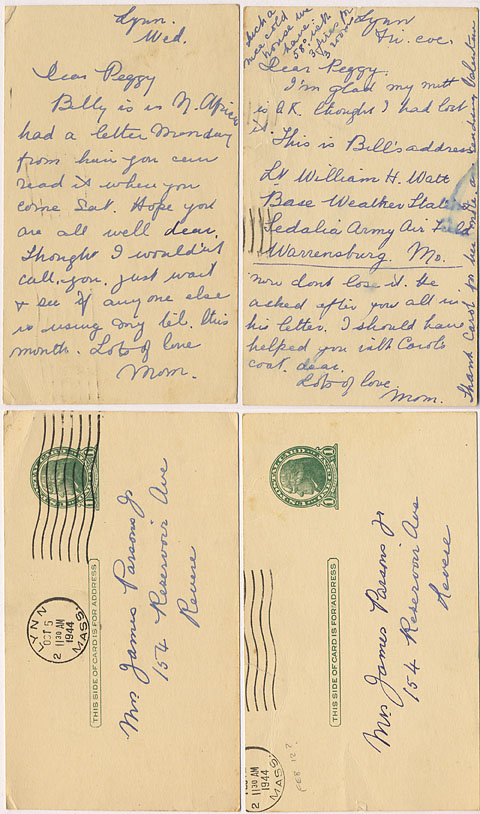 Lynn.
Wed.
Dear Peggy
Billy is in N. Africa
had a letter Monday
from him you can
read it when you
come Sat. Hope you
are all well dear.
Thought I wouldn't
call you. just wait
& see if anyone else
is using my tel. this
month. Lots of love
Mom.
Such a
nice cold
house we
have.
58° with
3 fires in
3 rooms
Lynn
Fri. eve.
Dear Peggy.
I'm glad my mitt
is O.K. thought I had lost
it. This is Bill's address
Lt William H. Watt
Base Weather Station
Sedalia Army Air Field
Warrensburg. Mo.
now dont lose it. He
asked after you all in
his letter. I should have
helped you with Carol's
coat. dear.
Lots of love
Mom.
Thank Carol for her Valentine
LYNN
OCT 5
11 30 AM
1944
MASS.
2
THIS SIDE OF CARD IS FOR ADDRESS
Mrs James Parsons Jr
154 Reservoir Ave
Revere
2 11 30 AM
1944
MASS.
FEB 12?
THIS SIDE OF CARD IS FOR ADDRESS
Mrs James Parsons Jr
154 Reservoir Ave
Revere